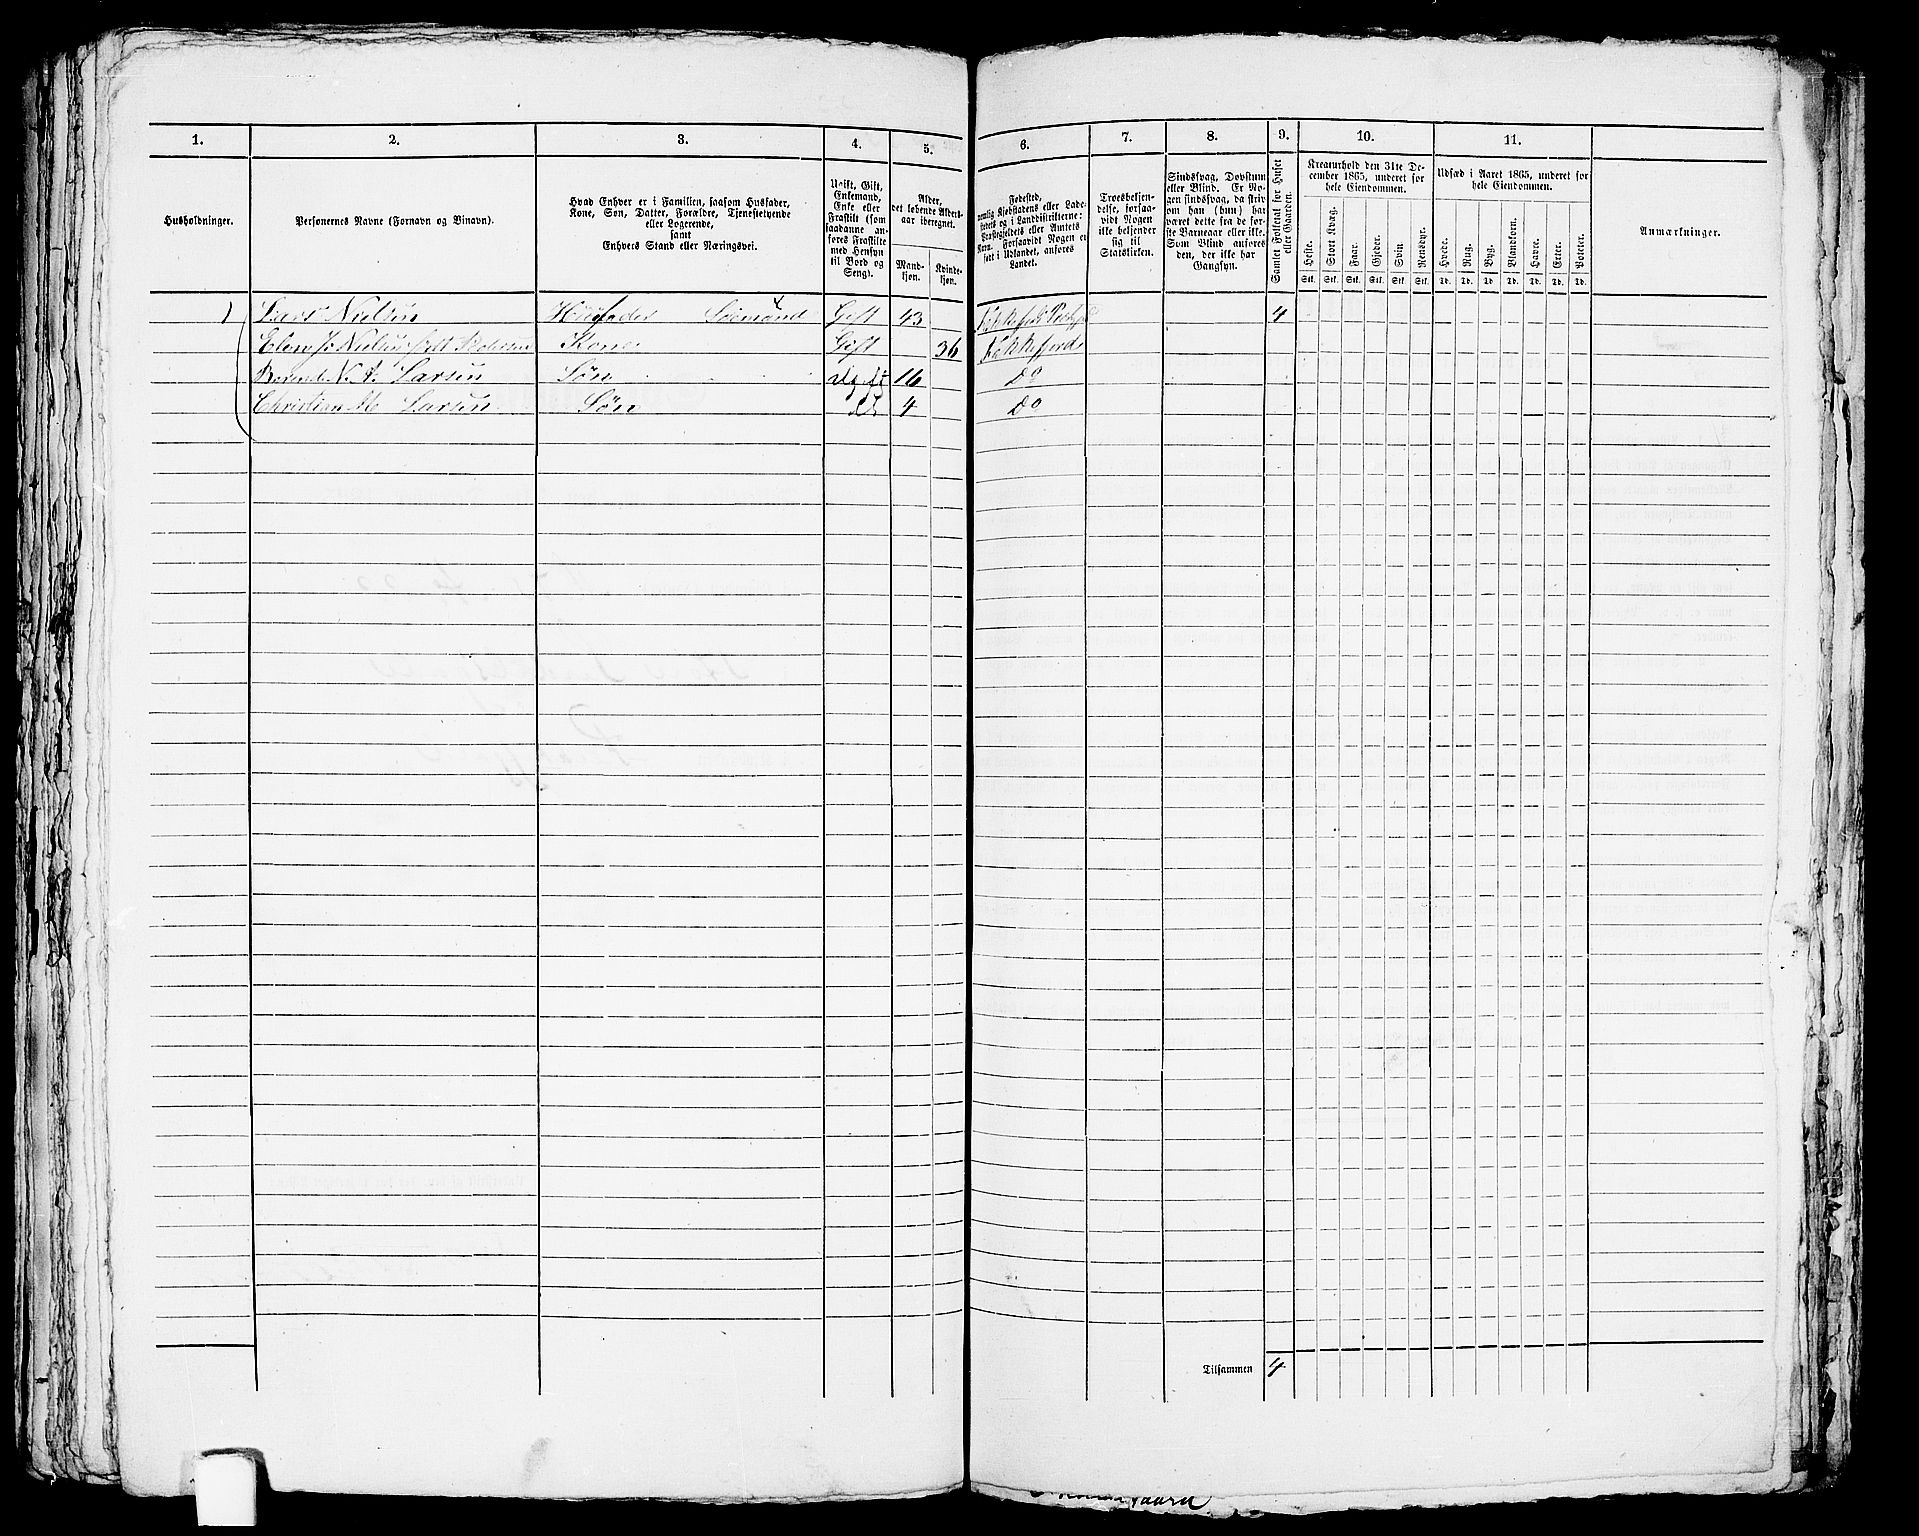 1. 2. 3. 4. 5. 6. 7. 8. 9. 10. 11.
Husholdninger.
Personernes Navne (Fornavn og Binavn).
Hvad Enhver er i Familien, saasom Husfader,
Kone, Søn, Datter, Forældre, Tjenestetyende
eller Logerende,
samt
Enhvers Stand eller Næringsvei.
Ugift, Gift,
Enkemand,
Enke eller
Fraskilt (som
saadanne an-
føres Fraskilte
med Hensyn
til Bord og
Seng).
Alder,
det løbende Alders-
aar iberegnet.
Mand-
kjøn.
Kvinde-
kjøn.
Fødested,
nemlig Kjøbstadens eller Lade-
stedets og i Landdistrikterne:
Præstegjeldets eller Amtets
Navn. Forsaavidt Nogen er
født i Udlandet, anføres
Landet.
Troesbekjen-
delse, forsaa-
vidt Nogen
ikke bekjender
sig til
Statskirken.
Sindssvag, Døvstum
eller Blind. Er No-
gen sindssvag, da skriv
om han (hun) har
været dette fra de før-
ste Barneaar eller ikke.
Som Blind anføres
den, der ikke har
Gangsyn.
Samlet Folketal for Huset
eller Gaarden.
Kreaturhold den 31te De-
cember 1865, underet for
hele Eiendommen.
Heste. Stort Kvæg. Faar. Gjeder. Sviin Rensdyr.
Stk. Stk. Stk. Stk. Stk. Stk.
Udsæd i Aaret 1865, underet for
hele Eiendommen.
Hvede. Rug. Byg. Blandkorn. Havre. Erter. Poteter.
Td. Td. Td. Td. Td. Td. Td.
Anmærkninger.
1 Lars Nielsen Huusfader Sømand Gift 43 4
Elen J. Nielsen født Pedersen Kone Gift 36 Flekkefjord
Berend N. A. Larsen Søn Ugift 16 Do
Christian M Larsen Søn 4 Do
Tilsammen 4